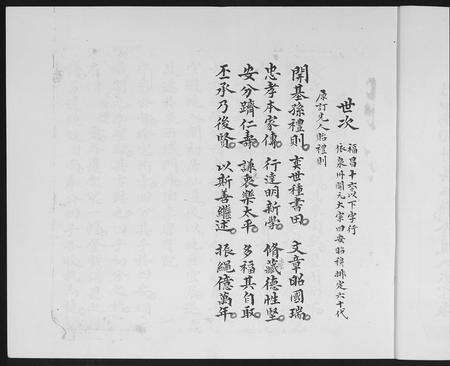 世次
福昌十六以下字行
依泉州開元大宗四安昭穆排定六十代
原訂先人昭禮則
開基孫禮則。奕世種書田。文章昭國瑞。
忠孝本家傳。行達明新學。脩藏德性堅。
安分躋仁壽。謙衷樂太平。多福其自取。
丕承乃後賢。以斯善繼述。振繩億萬年。